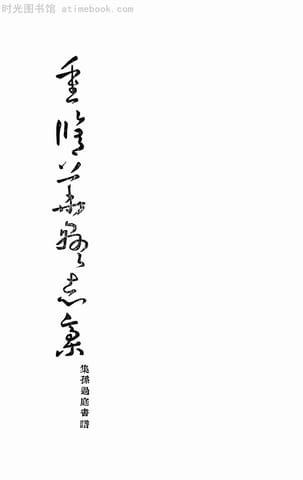 时光图书馆 - atimebook.com
重修華縣々志稾
集孫過庭書譜